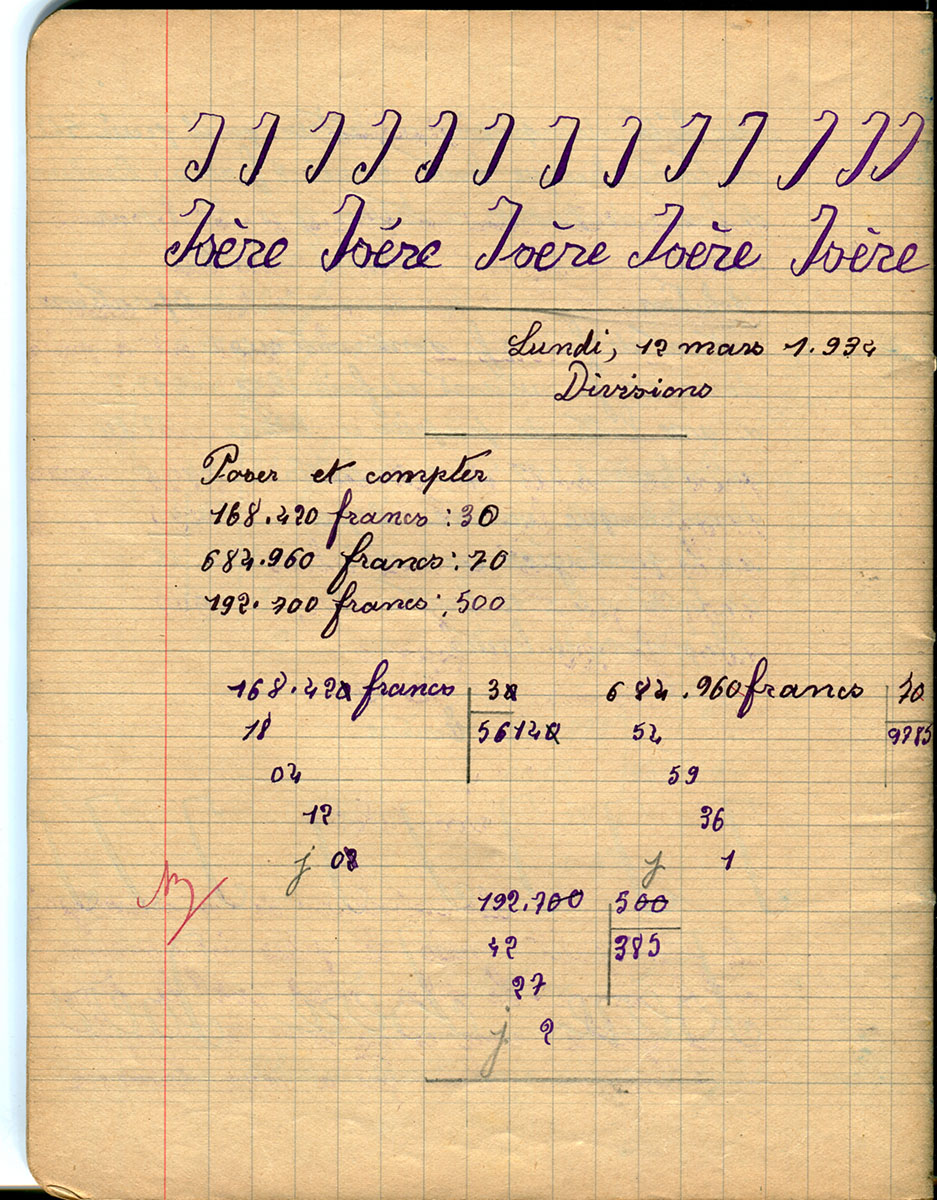 I I I I I I I I I I I I I
Isère Isére Isère Isère Isère
Lundi, 12 mars 1.934
Divisions
Poser et compter
168.420 francs : 30
684.960 francs : 70
192.700 francs : 500
168.420 francs 30 684.960 francs 70
18 56140 54 9785
04 59
12 36
j 02 j 1
192.700 500
42 385
27
j 2